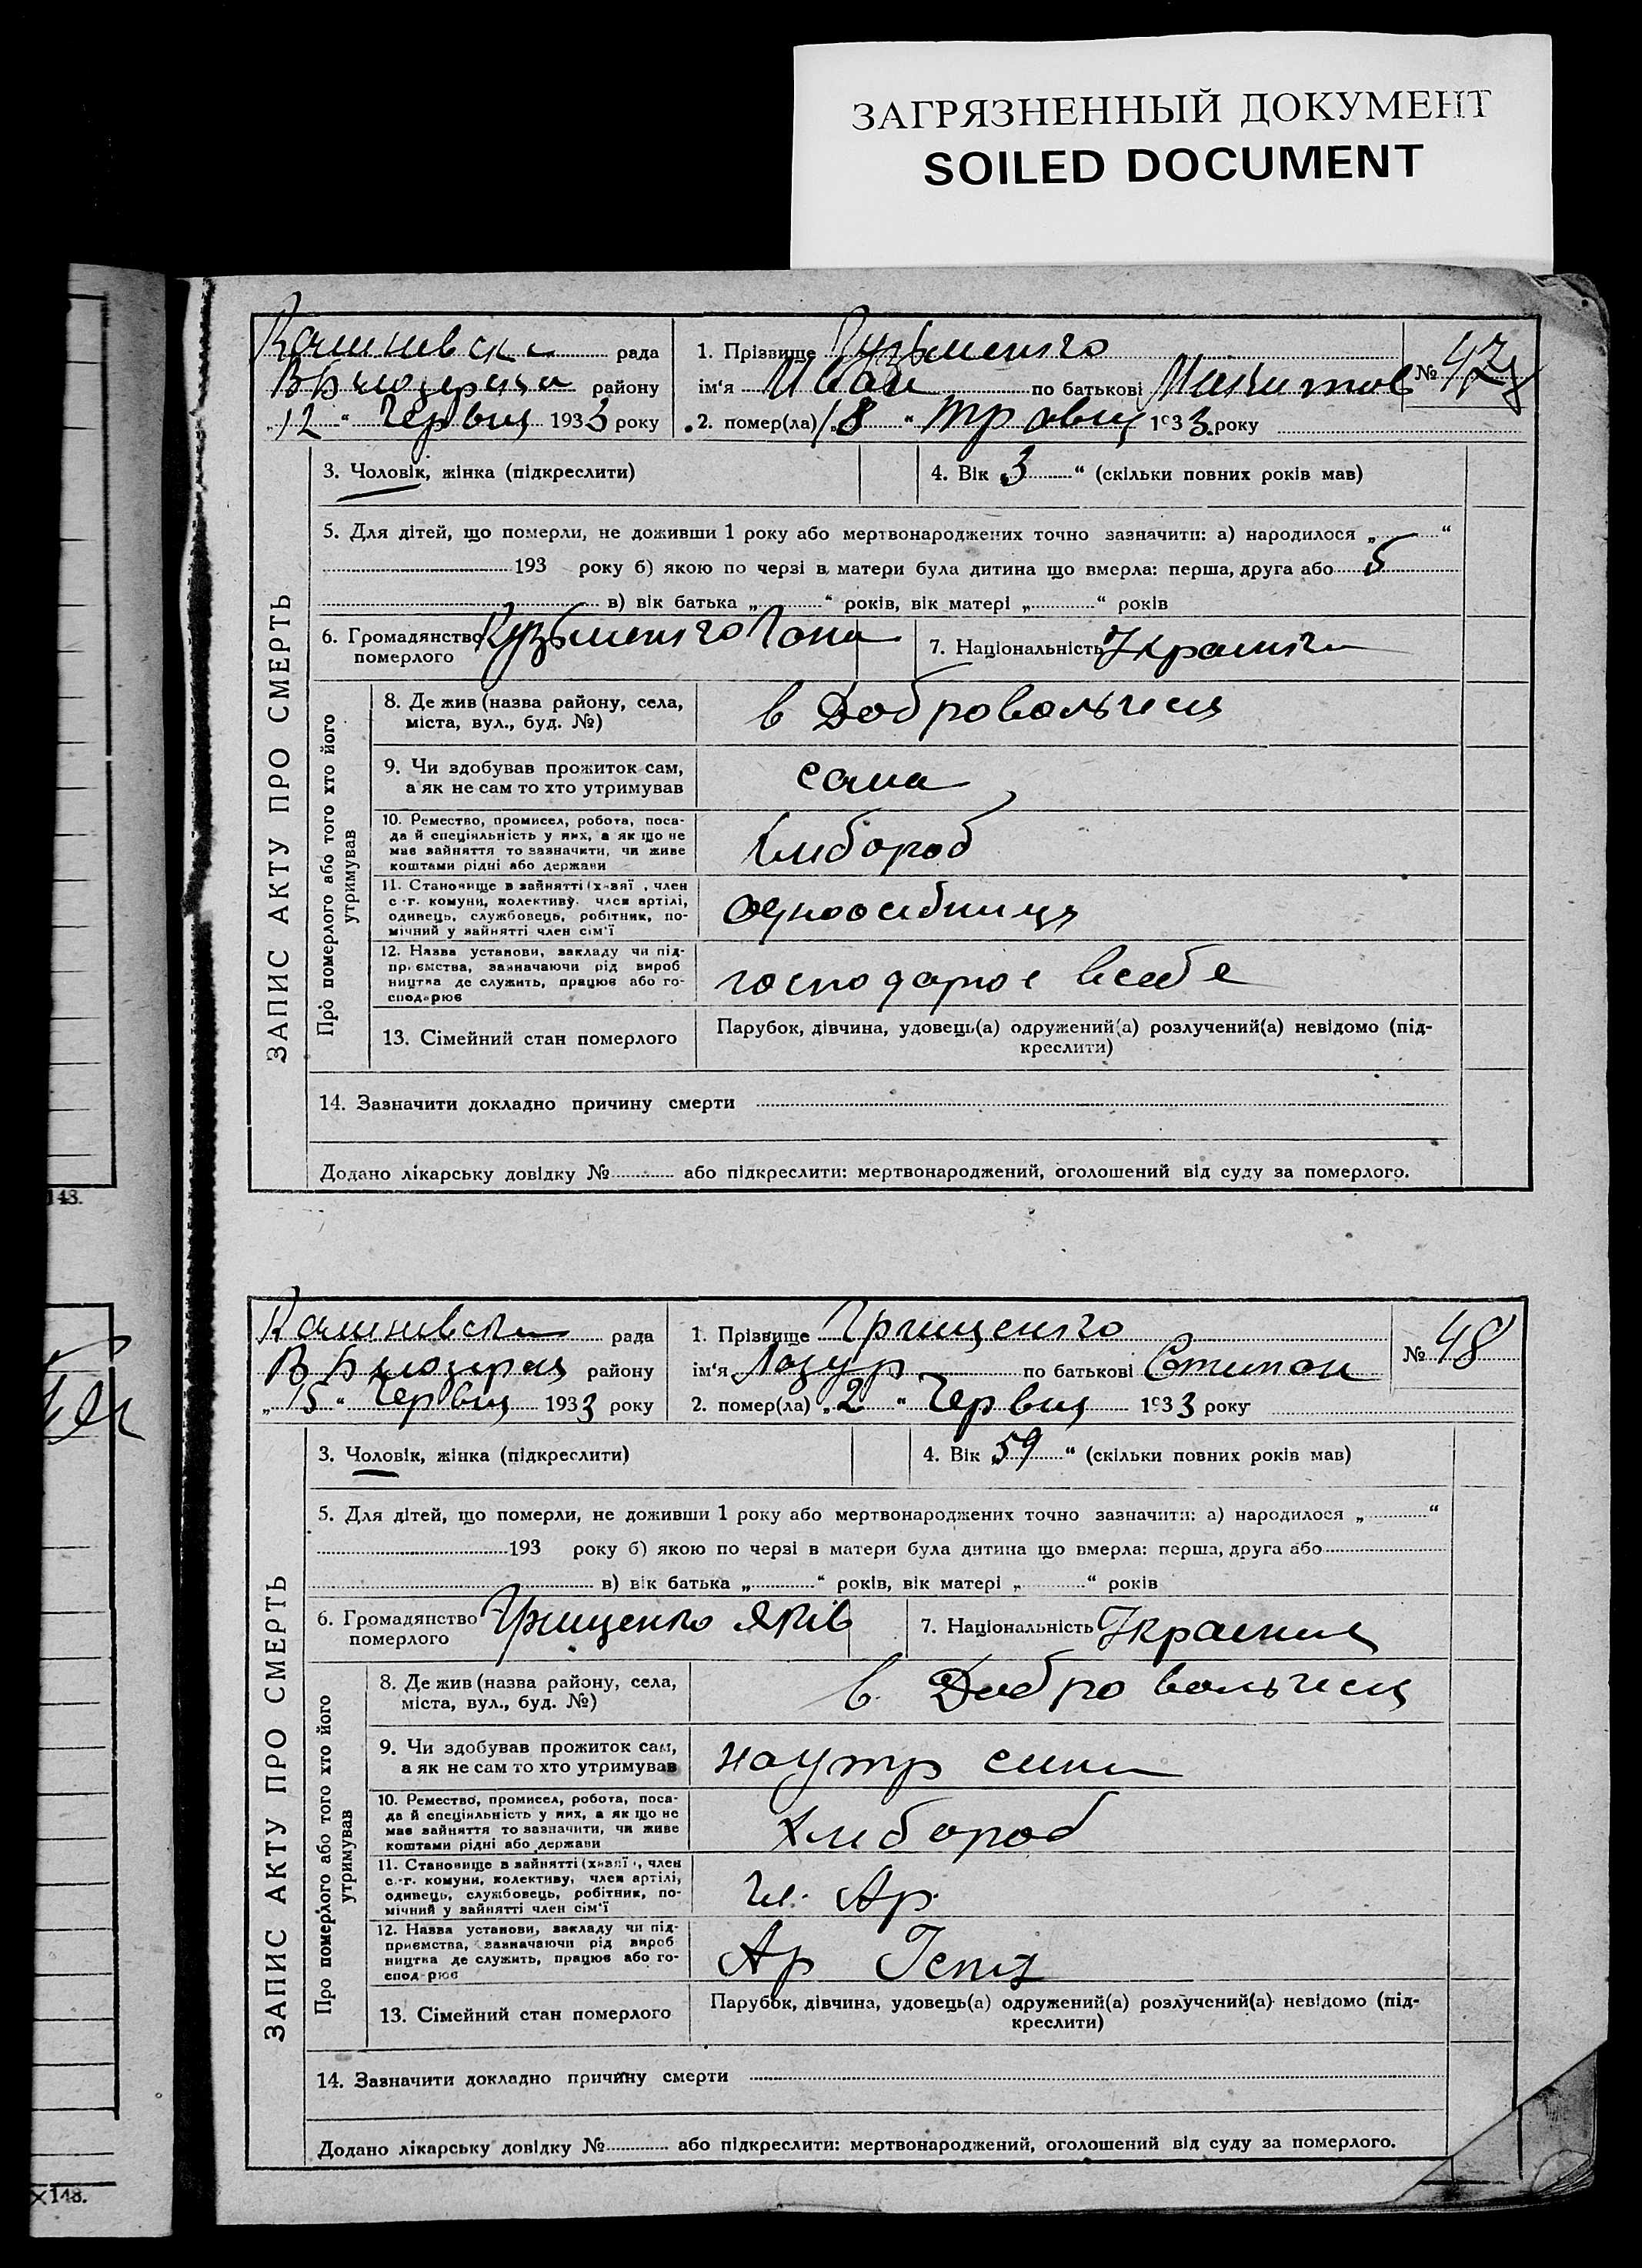 ЗАГРЯЗНЕННЫЙ ДОКУМЕНТ
SOILED DOCUMENT
рада
району
„12“ Червця 1933 року
1. Прізвище Кузьменко
ім'я Иван по батькові
№ 47
2. помер(ла) „18“ травця 1933 року
3. Чоловік, жінка (підкреслити)
4. Вік „3“ (скільки повних років мав)
5. Для дітей, що померли, не доживши 1 року або мертвонароджених точно зазначити: а) народилося „ “
193 року б) якою по черзі в матери була дитина що вмерла: перша, друга або 5
в) вік батька „ “ років, вік матері „ “ років
6. Громадянство померлого Кузьменко
7. Національність
ЗАПИС АКТУ ПРО СМЕРТЬ
Про померлого або того хто його утримував
8. Де жив (назва району, села,
міста, вул., буд. №)
в Добровольчец
9. Чи здобував прожиток сам,
а як не сам то хто утримував
сама
10. Ремество, промисел, робота, поса-
да й спеціяльність у них, а як що не
має зайняття то зазначити, чи живе
коштами рідні або держави
Хлибороб
11. Становище в зайнятті (хазяї, член
с.-г. комуни, колективу, член артілі,
одинець, службовець, робітник, по-
мічний у зайнятті член сім'ї
одноосибниця
12. Назва установи, закладу чи під-
приємства, зазначаючи рід вироб
ництва де служить, працює або го-
сподарює
господарює всебе
13. Сімейний стан померлого
Парубок, дівчина, удовець(а) одружений(а) розлучений(а) невідомо (під-
креслити)
14. Зазначити докладно причину смерти
Додано лікарську довідку № або підкреслити: мертвонароджений, оголошений від суду за померлого.
143.
рада
району
„15“ Червця 1933 року
1. Прізвище Грищенко
ім'я Лазур по батькові Степан
№ 48
2. помер(ла) „2“ Червця 1933 року
3. Чоловік, жінка (підкреслити)
4. Вік „59“ (скільки повних років мав)
5. Для дітей, що померли, не доживши 1 року або мертвонароджених точно зазначити: а) народилося „ “
193 року б) якою по черзі в матери була дитина що вмерла: перша, друга або
в) вік батька „ “ років, вік матері „ “ років
6. Громадянство померлого Грищенко Яків
7. Національність
ЗАПИС АКТУ ПРО СМЕРТЬ
Про померлого або того хто його утримував
8. Де жив (назва району, села,
міста, вул., буд. №)
в. Добровольчец
9. Чи здобував прожиток сам,
а як не сам то хто утримував
наутр сина
10. Ремество, промисел, робота, поса-
да й спеціяльність у них, а як що не
має зайняття то зазначити, чи живе
коштами рідні або держави
Хлибороб
11. Становище в зайнятті (хазяї, член
с.-г. комуни, колективу, член артілі,
одинець, службовець, робітник, по-
мічний у зайнятті член сім'ї
Чл. Ар.
12. Назва установи, закладу чи під-
приємства, зазначаючи рід вироб
ництва де служить, працює або го-
сподарює
Ар
13. Сімейний стан померлого
Парубок, дівчина, удовець(а) одружений(а) розлучений(а) невідомо (під-
креслити)
14. Зазначити докладно причину смерти
Додано лікарську довідку № або підкреслити: мертвонароджений, оголошений від суду за померлого.
148.